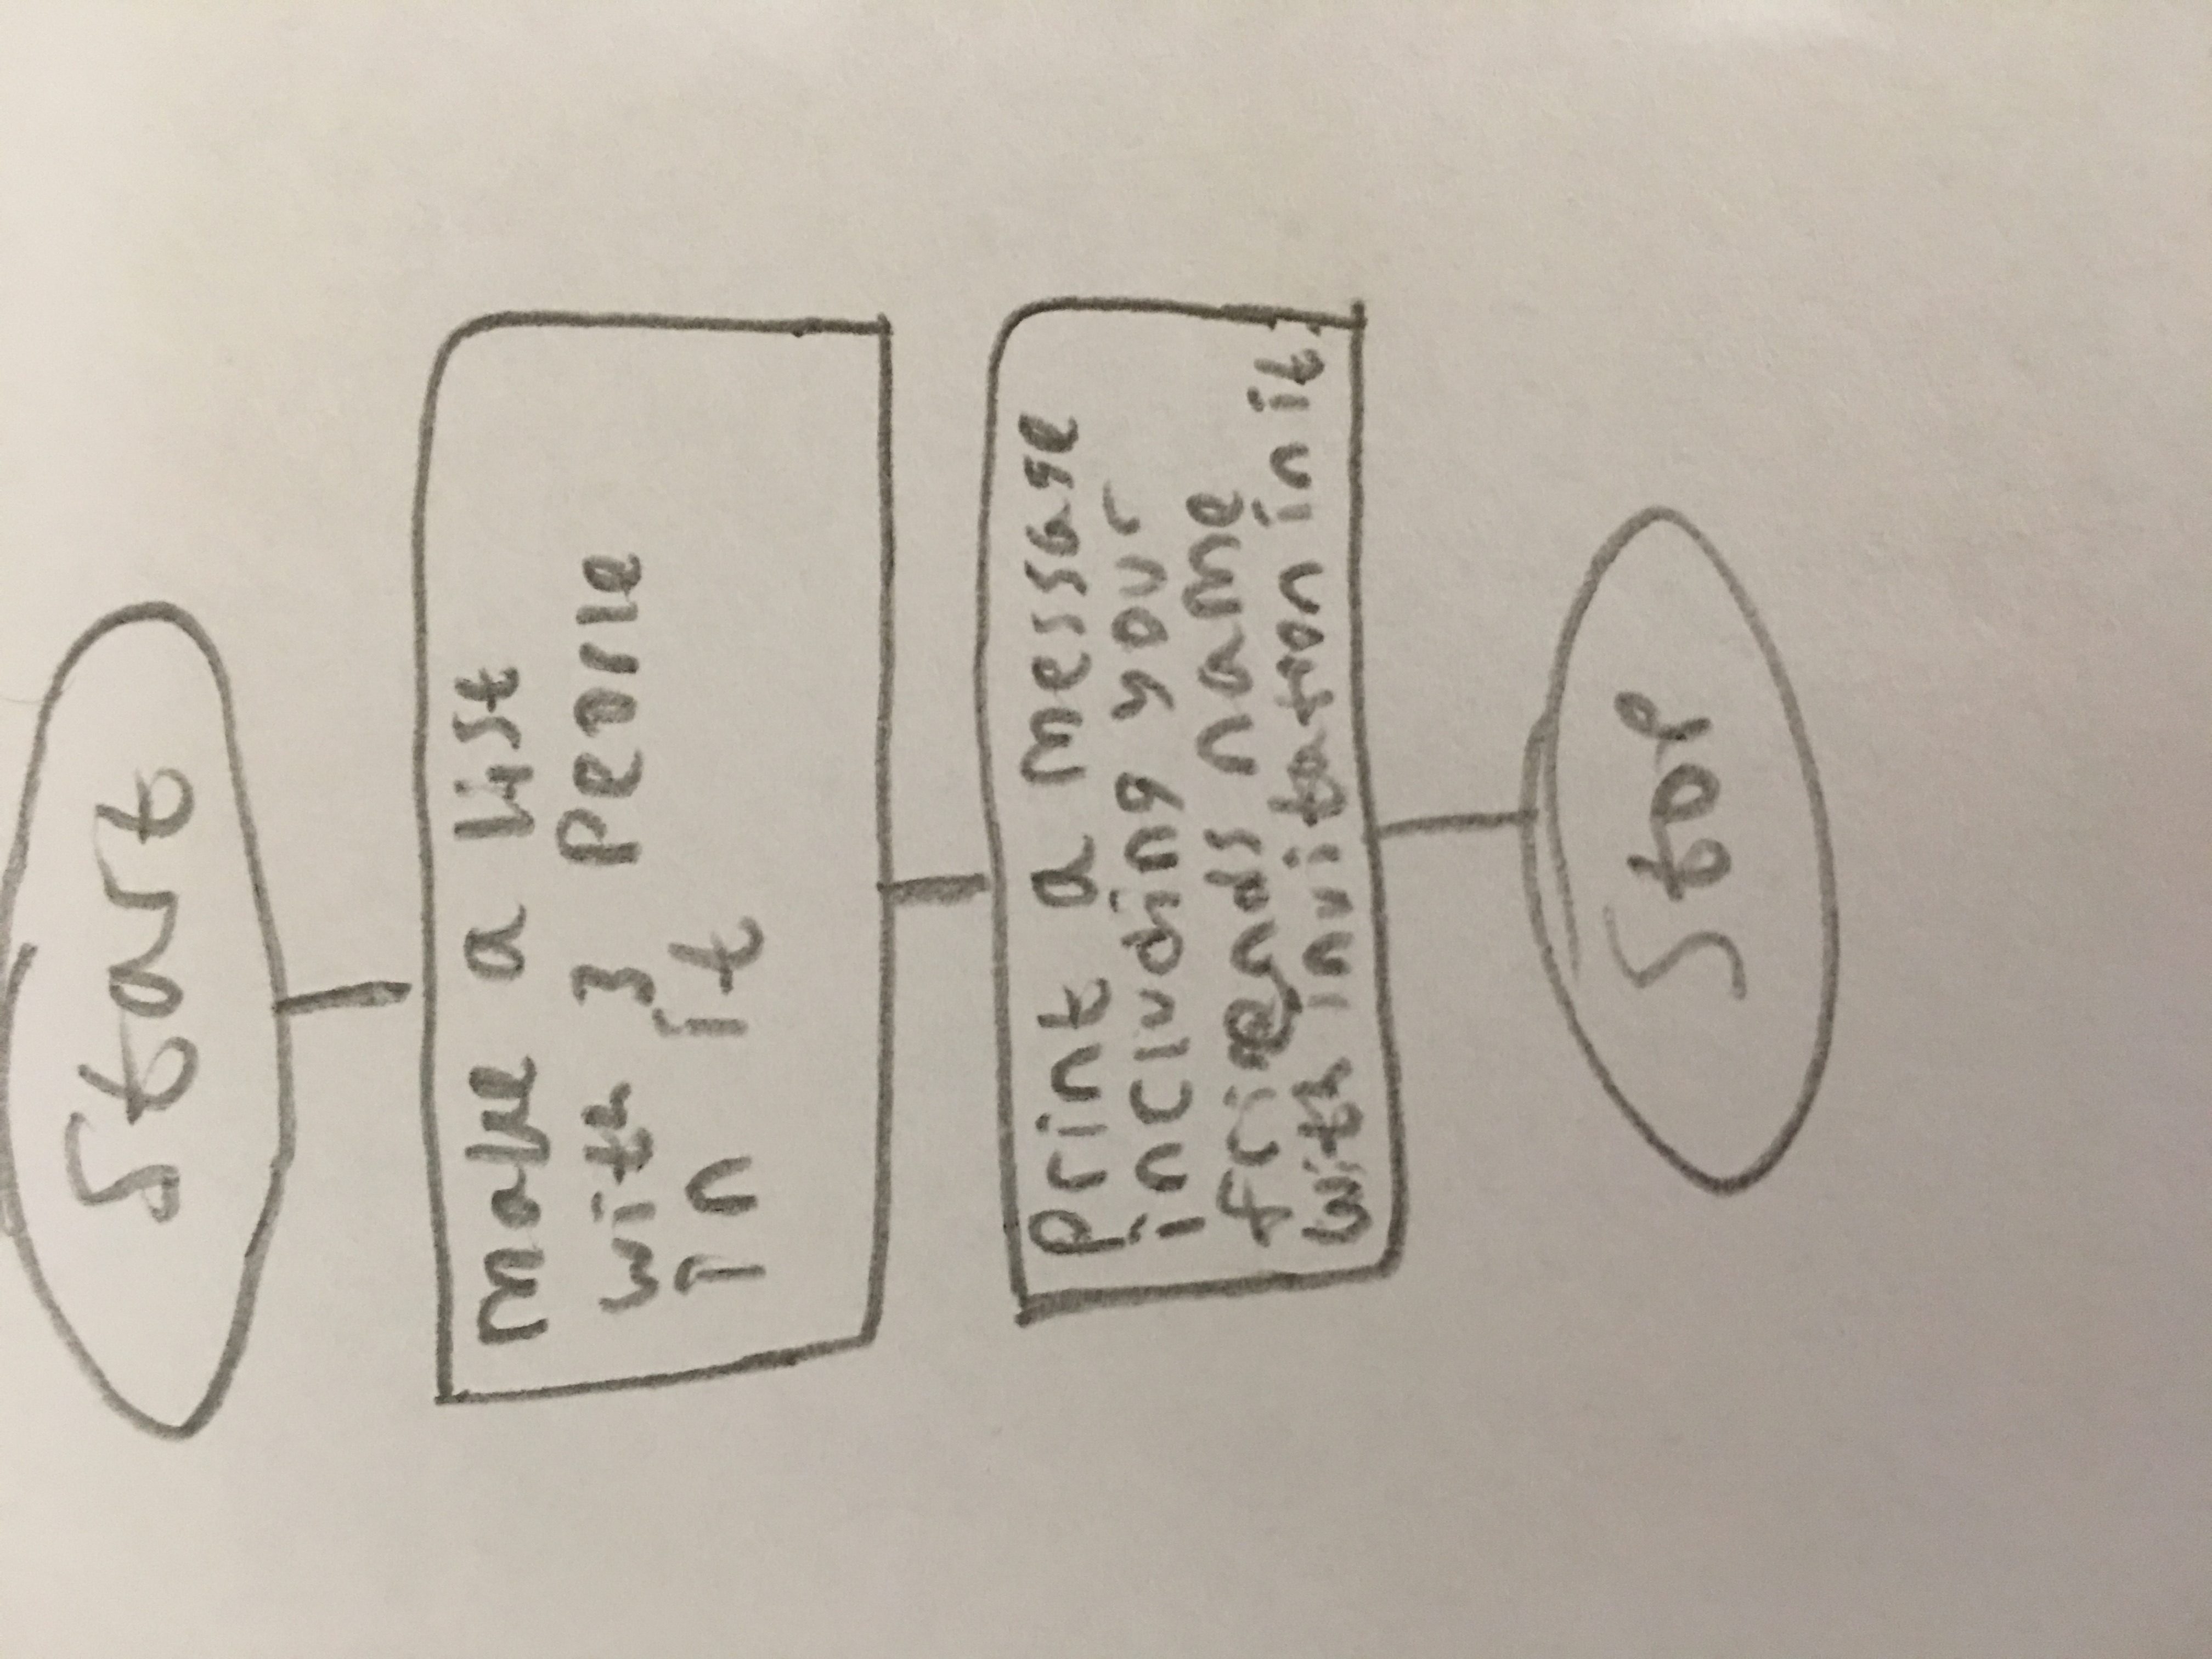 Start
make a list
with 3 People
in it
Print a message
including your
friends name
with invitation in it.
Stop